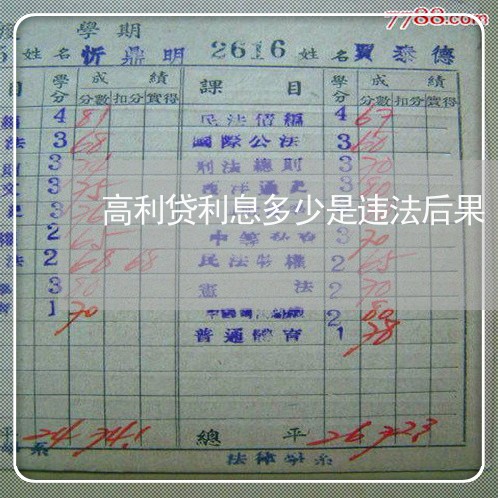 7788.com
學期
姓名 忻鼎明 2616 姓名 賈泰德
目 學分 成績 課目 學分 成績
分數 扣分 實得 分數 扣分 實得
4 81 民法債編 4 67
法 3 68 國際公法 3 60
3 刑法總則 3 70
3 75 3 80
高利贷利息多少是违法后果
2 65 3 70
法 2 68 68 民法物權 2 65
3 80 憲法 2 70
1 70 2 80
普通體育 1 78
平 24 74.1 總平 26 72.3
系 法律學系